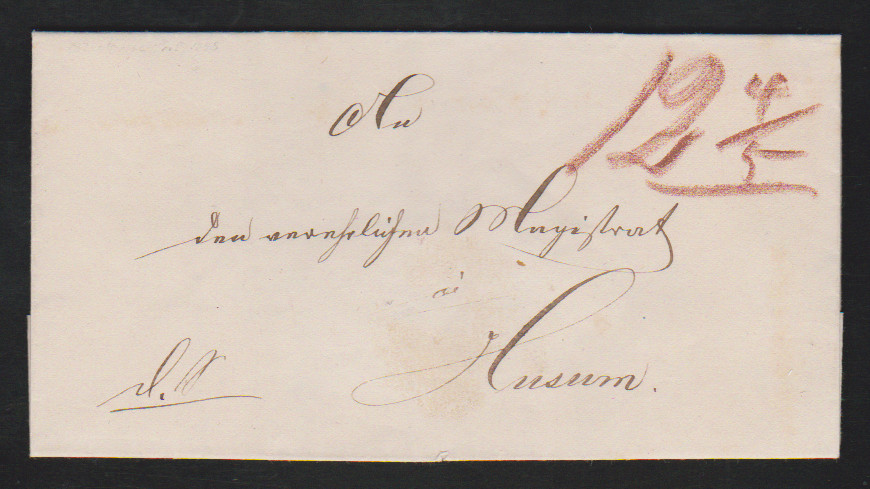 12 4/5
An
den verehrlichen Magistrat
in
Husum.
d. S